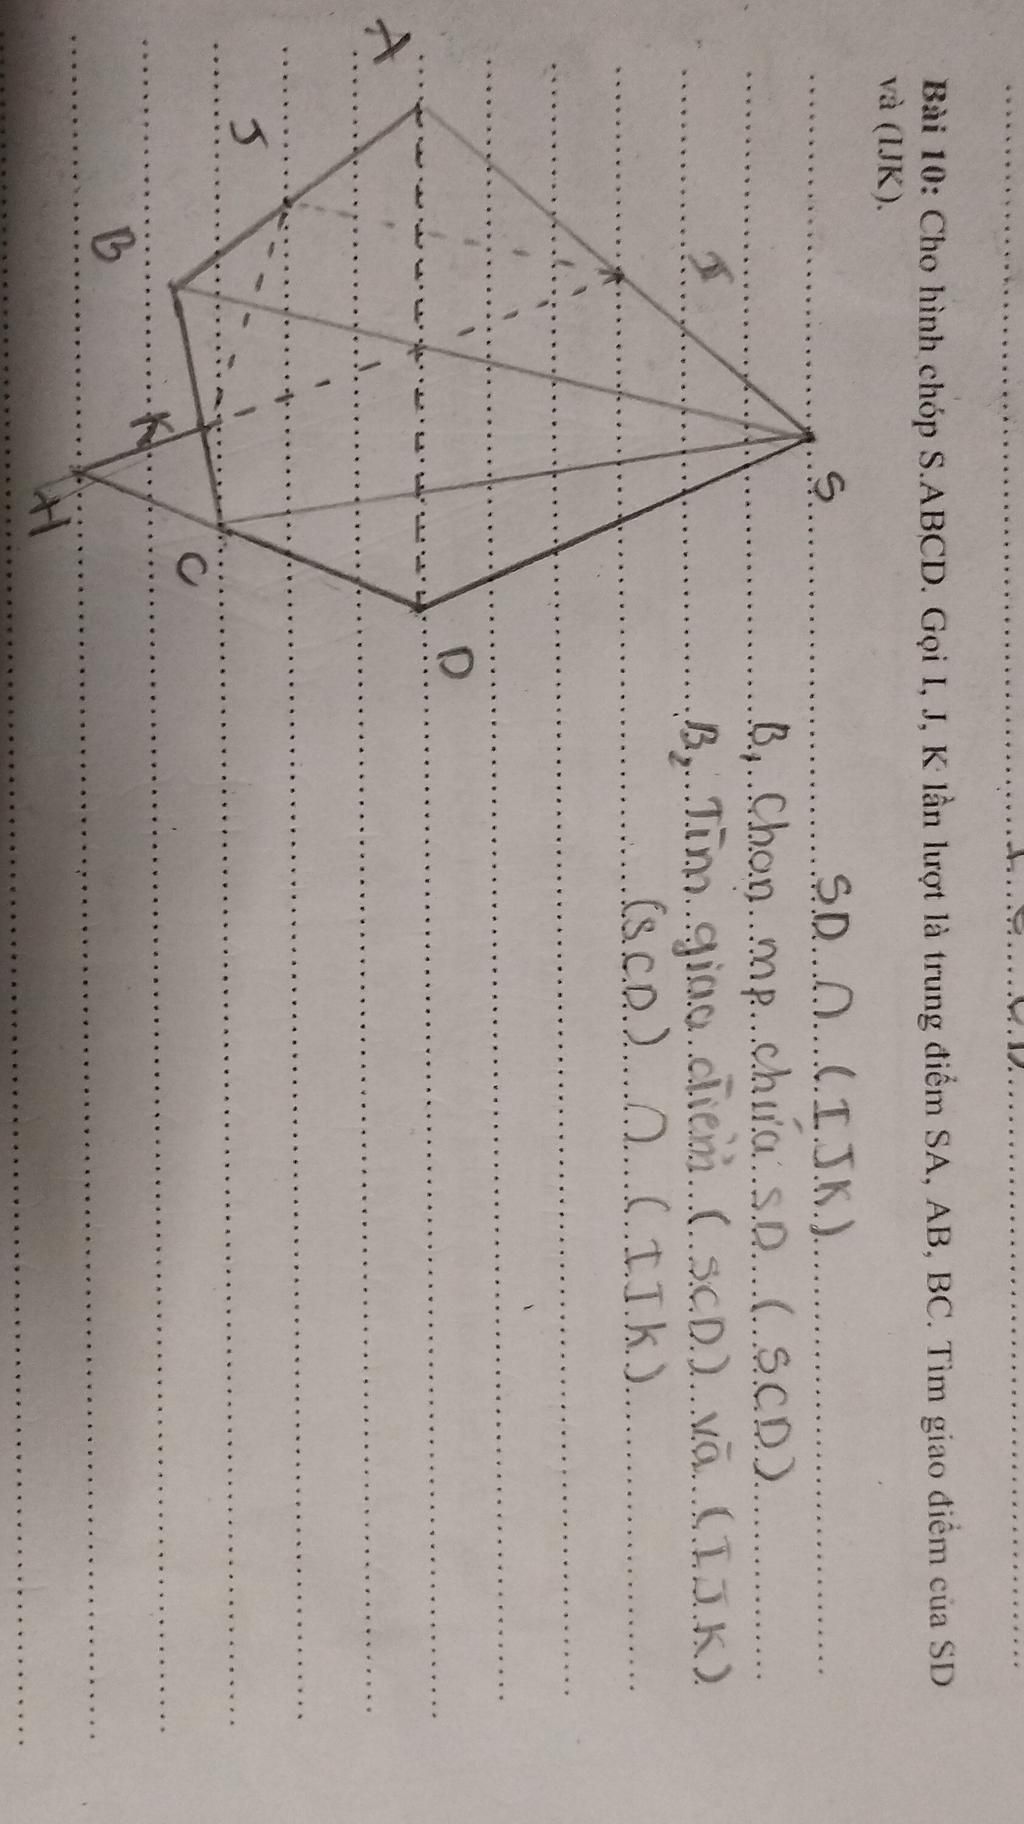 Bài 10: Cho hình chóp S.ABCD. Gọi I, J, K lần lượt là trung điểm SA, AB, BC. Tìm giao điểm của SD
và (IJK).
SD ∩ (IJK)
B1 Chọn mp chứa SD (SCD)
B2 Tìm giao điểm (SCD) và (IJK)
(SCD) ∩ (IJK)
S
I
A
D
J
B
K
C
H